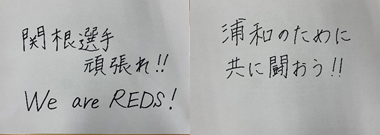 関根選手
頑張れ!!
We are REDS!
浦和のために
共に闘おう!!